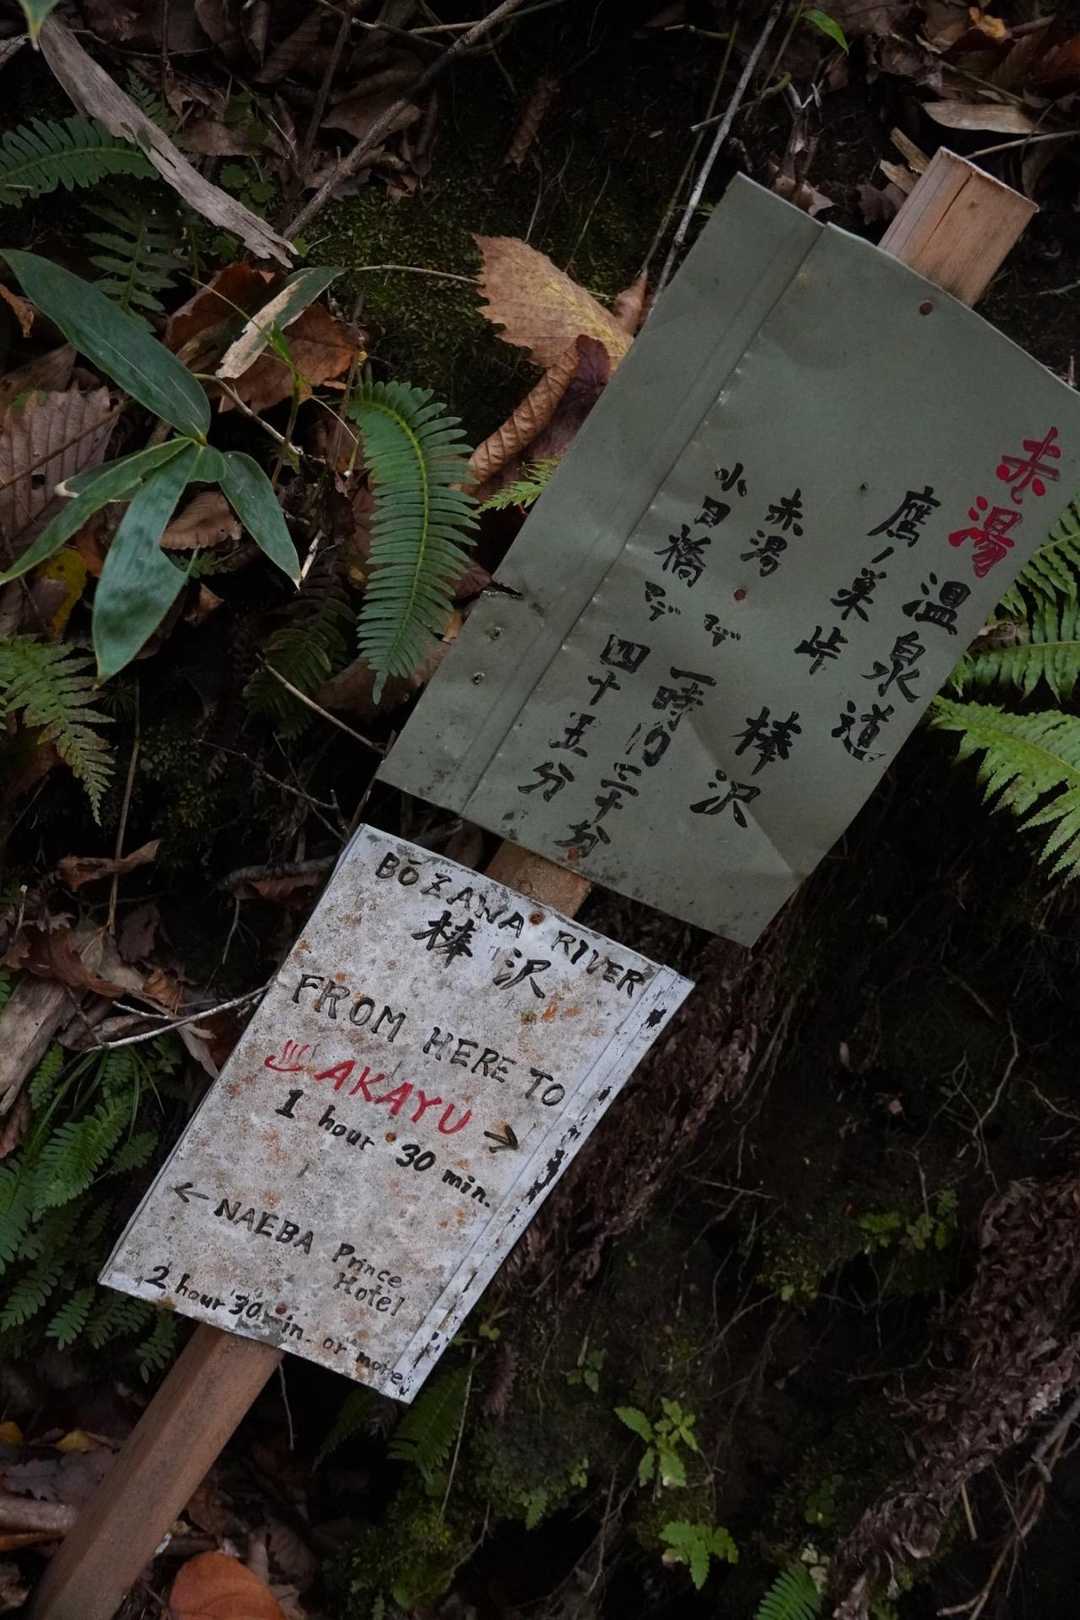 赤湯温泉道
鷹ノ巣峠 棒沢
赤湯マデ 一時間三十分
小日橋マデ 四十五分
BŌZAWA RIVER
棒沢
FROM HERE TO
♨AKAYU →
1 hour 30 min.
← NAEBA Prince
Hotel
2 hour 30 min. or more